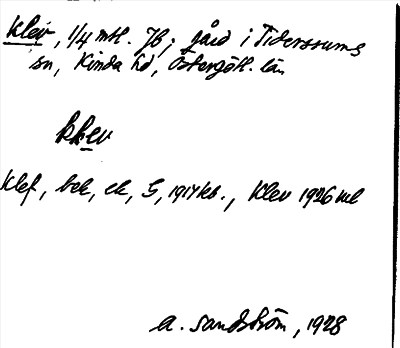 Klev, 1/4 mtl. Jb; gård i Tidersrums
sn, Kinda hd, Östergötl. län
klev
Klef, bek, ek, S, 1917 kb., Klev 1926 ml
A. Sandström, 1928